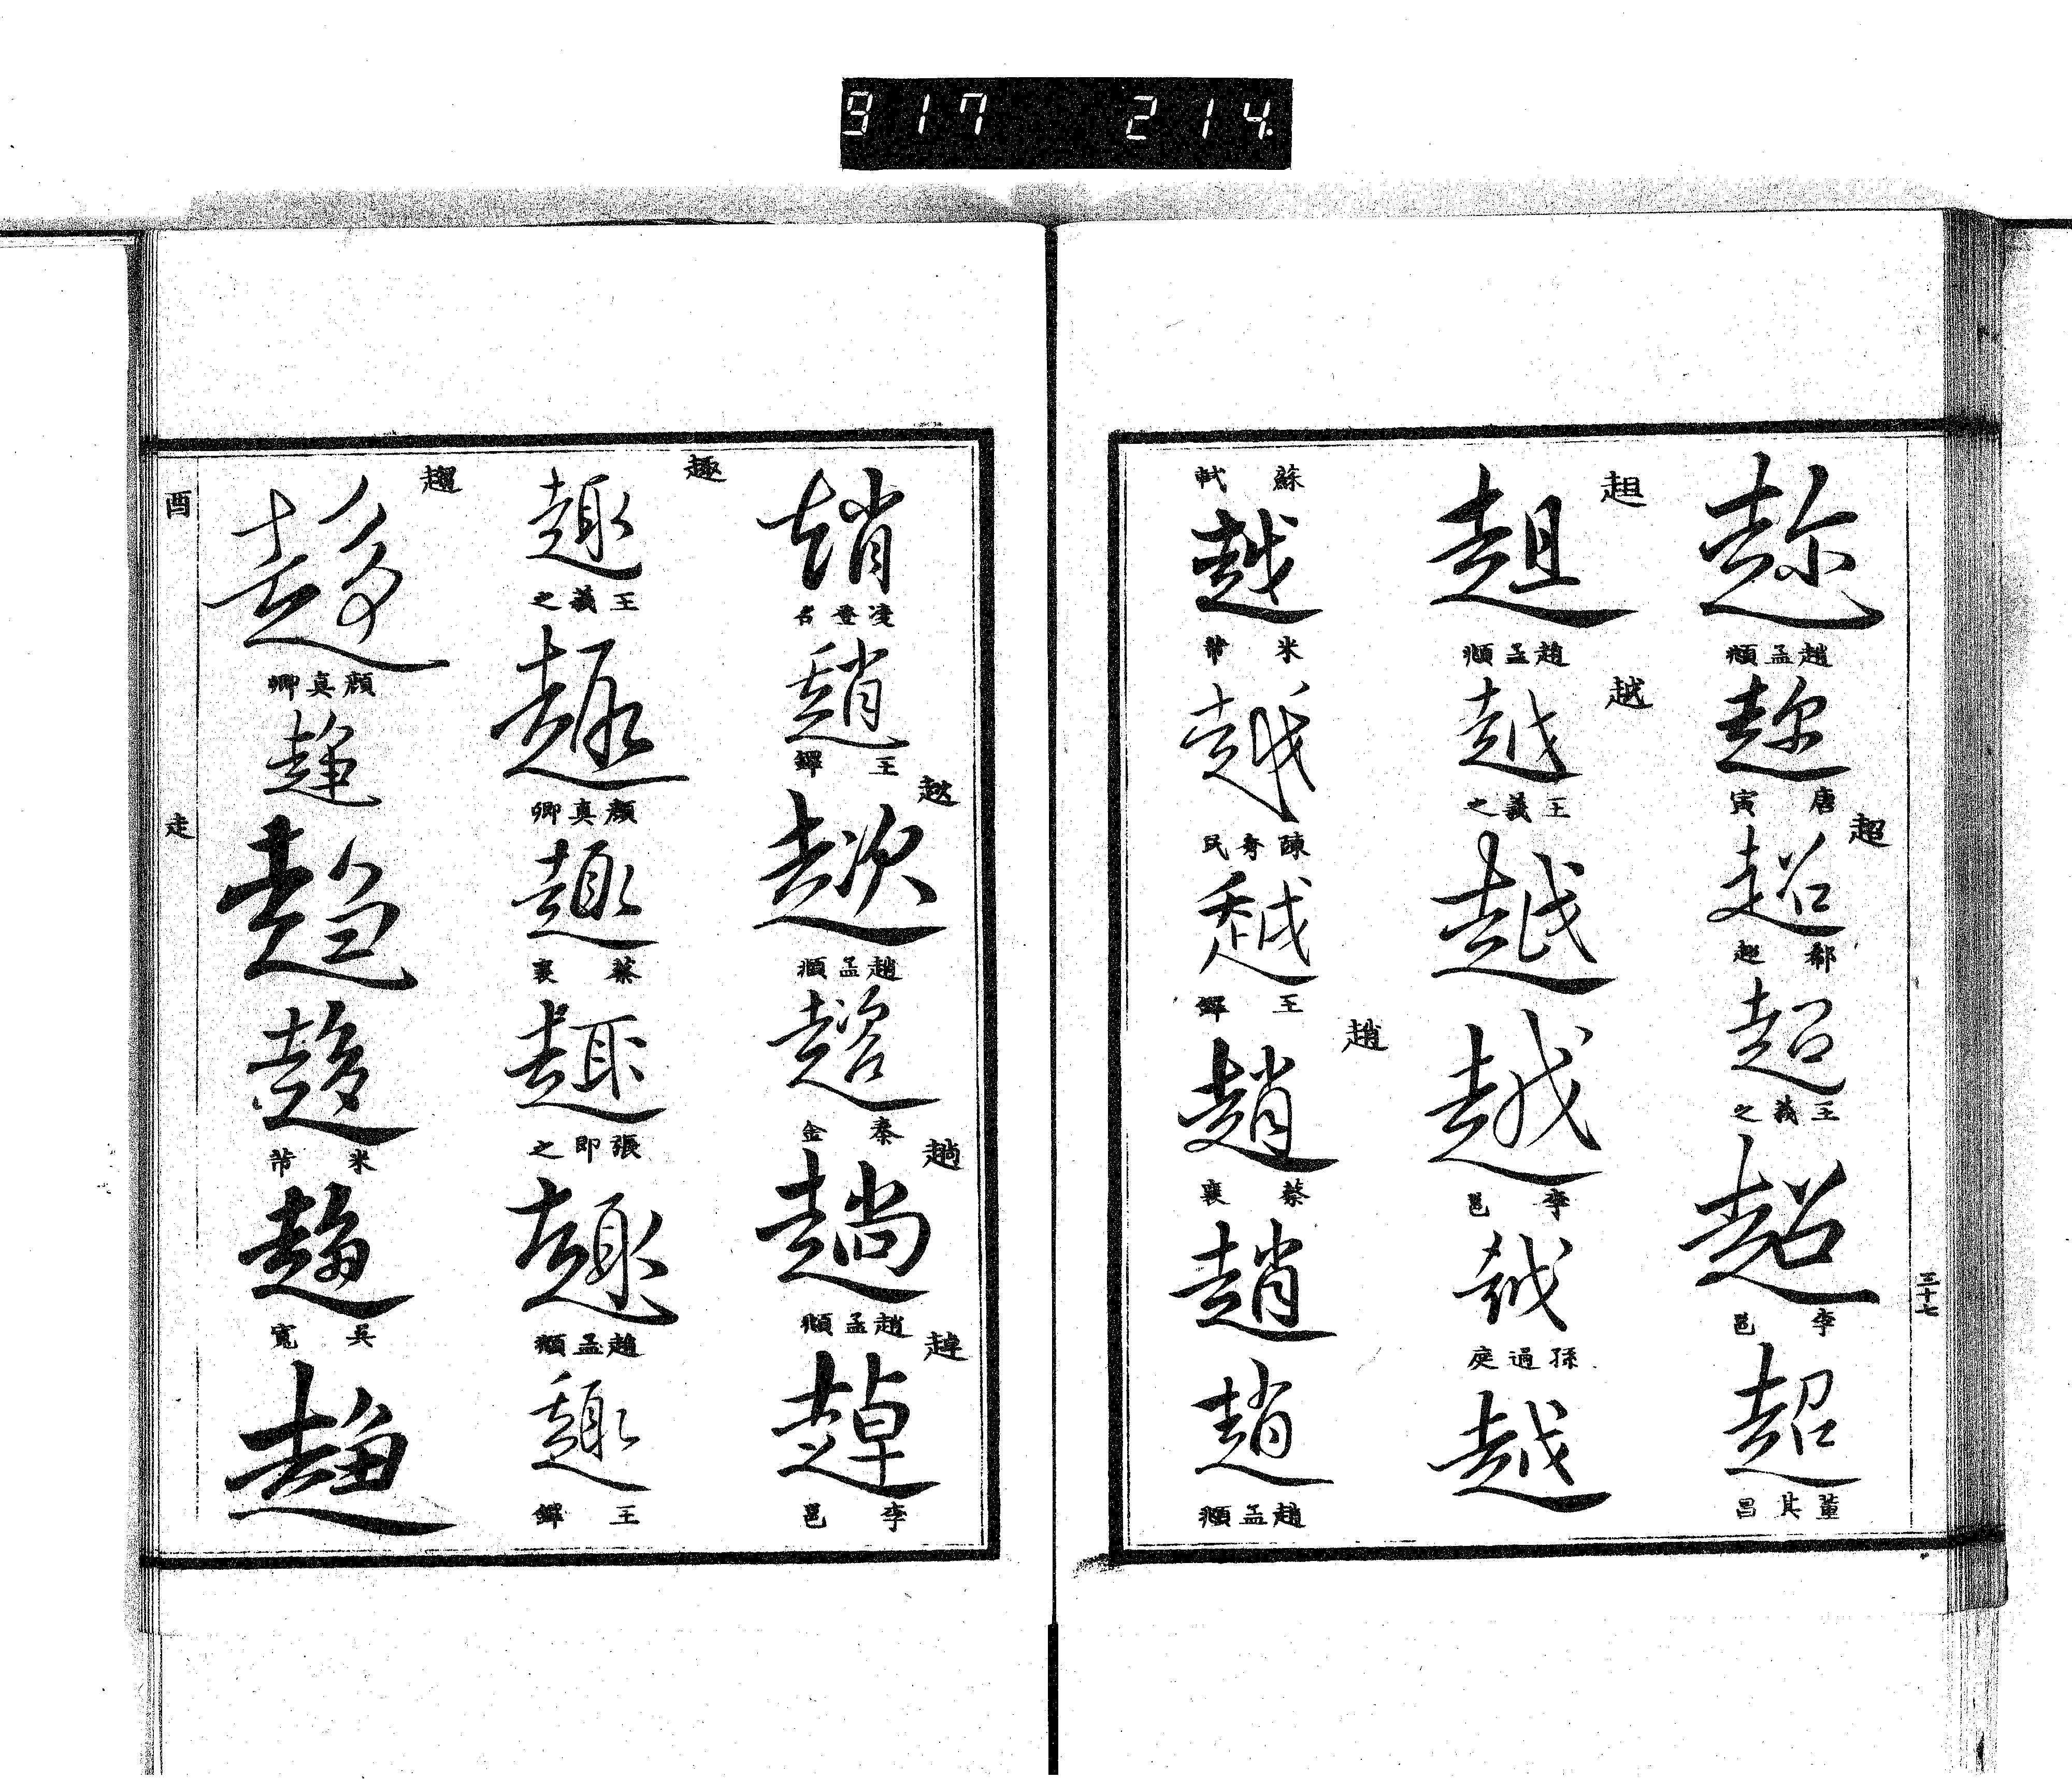 917 214.
三十七
趁
趙孟頫
趁
唐寅
超
超
郗超
超
王羲之
超
李邕
超
董其昌
趄
趄
趙孟頫
越
越
王羲之
越
越
李邕
越
孫過庭
越
蘇軾
越
米芾
越
陳奇民
越
王鐸
趙
趙
蔡襄
趙
趙
趙孟頫
趙
凌登名
趙
王鐸
趑
趑
趙孟頫
秦金
趟
趟
趙孟頫
趠
趠
李邕
趣
趣
王羲之
趣
顏真卿
趣
蔡襄
趣
張即之
趣
趙孟頫
趣
王鐸
趨
趨
顏真卿
趨
趨
趨
米芾
趨
吳寬
趨
酉
走